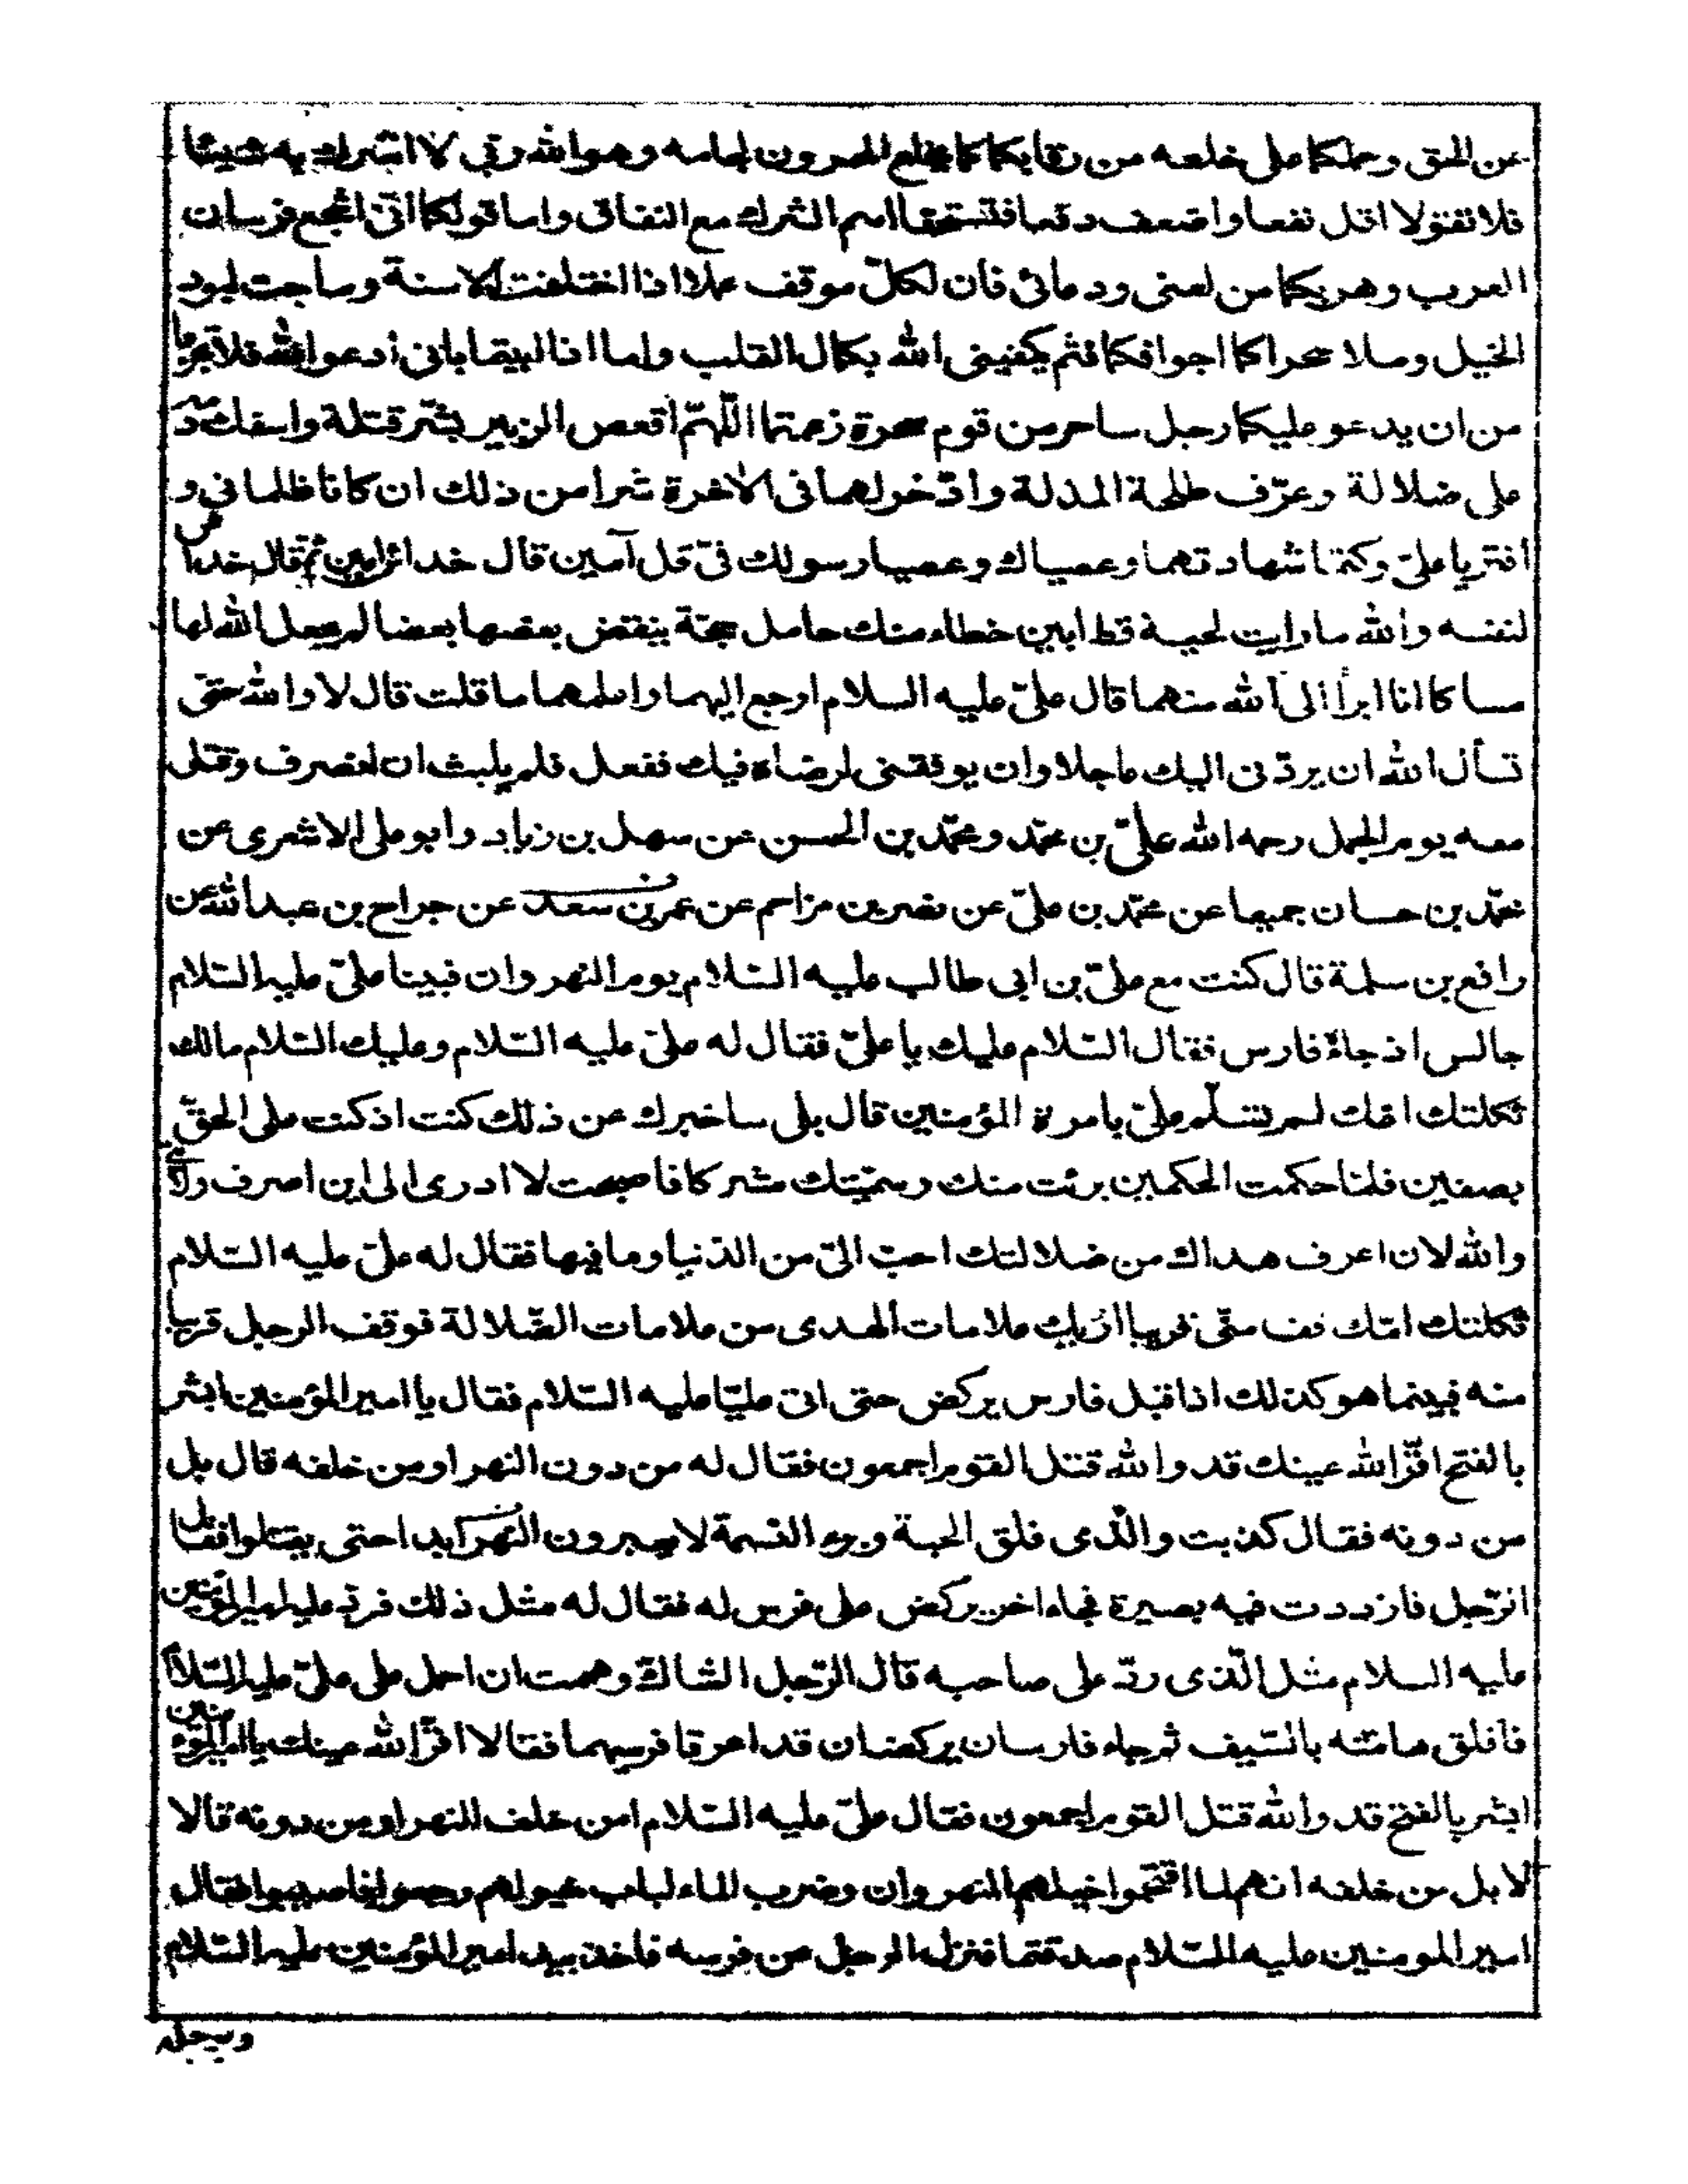 عن الحق وحملكما على خلعه من رقابكما كما يخلع الحرون لجامه وهو الله ربي لا اشرك به شيئا
فلا تقولا اقل نفعا واضعف دفعا فتستحقا اسم الشرك مع النفاق واما قولكما انّى اشجع فرسان
العرب وهربكما من لعنى ودعائى فان لكلّ موقف عملا اذا اختلفت الاسنة وماجت لبود
الخيل وملا سحراكما اجوافكما فثم يكفينى الله بكمال القلب واما اذا ابيتما بانى ادعوا الله فلا تجزعا
من ان يدعو عليكما رجل ساحر من قوم سحرة زعمتما اللّهمّ اقعص الزبير بشرّ قتلة واسفك دمه
على ضلالة وعرّف طلحة المذلة وادّخر لهما فى الاخرة شرا من ذلك ان كانا ظلمانى و
افتريا علىّ وكتما شهادتهما وعصياك وعصيا رسولك فىّ قل آمين قال خداش امين ثمّ قال خداش
لنفسه والله ما رايت لحية قط ابين خطاء منك حامل حجّة ينقض بعضها بعضا لم يجعل الله لها
مساكا انا ابرأ الى الله منهما قال علىّ عليه السلام ارجع اليهما واعلمهما ما قلت قال لا والله حتىّ
تسأل الله ان يردّنى اليك عاجلا وان يوفقنى لرضاه فيك ففعل فلم يلبث ان انصرف وقتل
معه يوم الجمل رحمه الله علىّ بن محمّد ومحمّد بن الحسن عن سهل بن زياد وابو على الاشعرى عن
محمّد بن حسان جميعا عن محمّد بن علىّ عن نصر بن مزاحم عن عمر بن سعد عن جراح بن عبد الله عن
رافع بن سلمة قال كنت مع علىّ بن ابى طالب عليه السّلام يوم النهروان فبينا علىّ عليه السّلام
جالس اذ جاءَ فارس فقال السّلام عليك يا علىّ فقال له علىّ عليه السّلام وعليك السّلام مالك
ثكلتك امّك لم تسلّم علىّ بامرة المؤمنين قال بلى ساخبرك عن ذلك كنت اذ كنت على الحقّ
بصفين فلمّا حكمت الحكمين برئت منك وسمّيتك مشركا فاصبحت لا ادرى الى اين اصرف ولايتى
والله لان اعرف هداك من ضلالتك احبّ الىّ من الدّنيا وما فيها فقال له علىّ عليه السّلام
ثكلتك امّك قف منّى قريبا اريك علامات الهدى من علامات الضّلالة فوقف الرجل قريبا
منه فبينما هو كذلك اذ اقبل فارس يركض حتى اتى عليّا عليه السّلام فقال يا امير المؤمنين ابشر
بالفتح اقرّ الله عينك قد والله قتل القوم اجمعون فقال له من دون النهر او من خلفه قال بل
من دونه فقال كذبت والّذى فلق الحبة وبرء النسمة لا يعبرون النّهر ابدا حتى يقتلوا فقال
الرّجل فازددت فيه بصيرة فجاء اخر يركض على فرس له فقال له مثل ذلك فردّ عليه امير المؤمنين
عليه السلام مثل الّذى ردّ على صاحبه قال الرّجل الشاكّ وهممت ان احمل على علىّ عليه السّلام
فافلق هامته بالسّيف ثم جاء فارسان يركضان قد اعرقا فرسيهما فقالا اقرّ الله عينك يا امير المؤمنين
ابشر بالفتح قد والله قتل القوم اجمعون فقال علىّ عليه السّلام امن خلف النهر او من دونه قالا
لا بل من خلفه انهم لما اقتحموا خيلهم النهروان وضرب الماء لباب خيولهم رجعوا فاصيبوا فقال
امير المومنين عليه السّلام صدقتما فنزل الرجل عن فرسه فاخذ بيد امير المؤمنين عليه السّلام
وبرجله